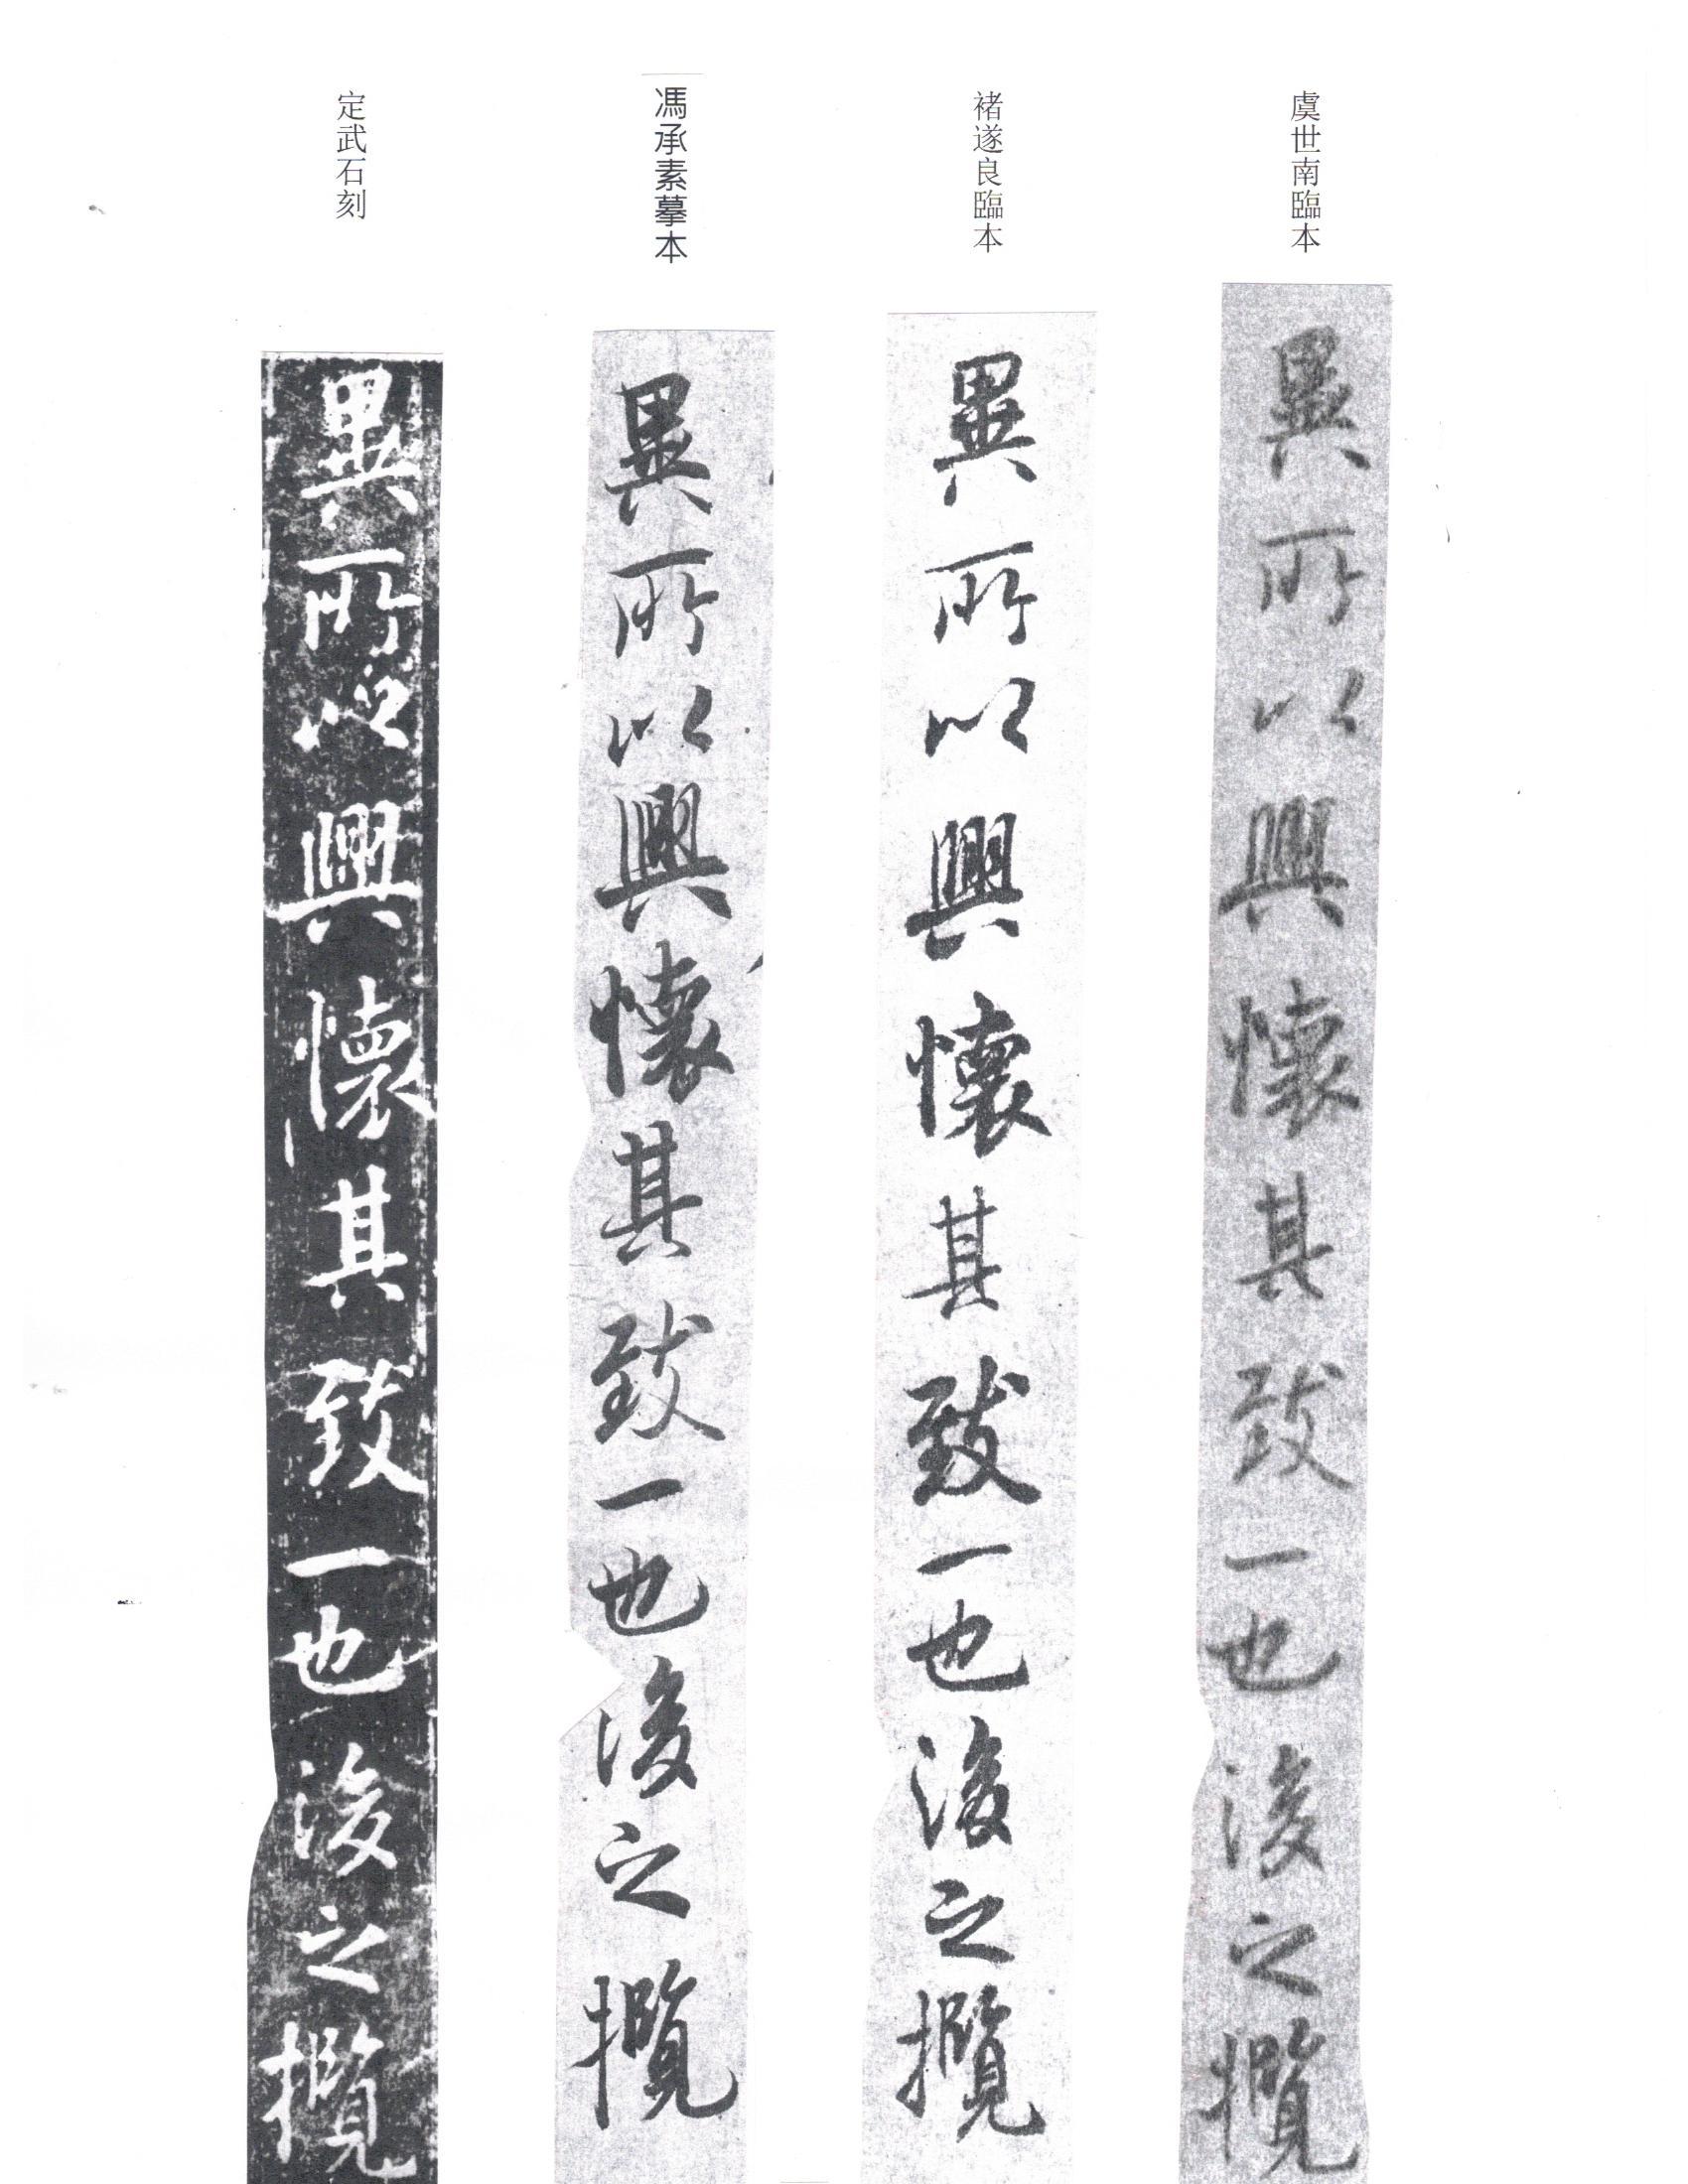 虞世南臨本
異所以興懷其致一也後之攬
褚遂良臨本
異所以興懷其致一也後之攬
馮承素摹本
異所以興懷其致一也後之攬
定武石刻
異所以興懷其致一也後之攬